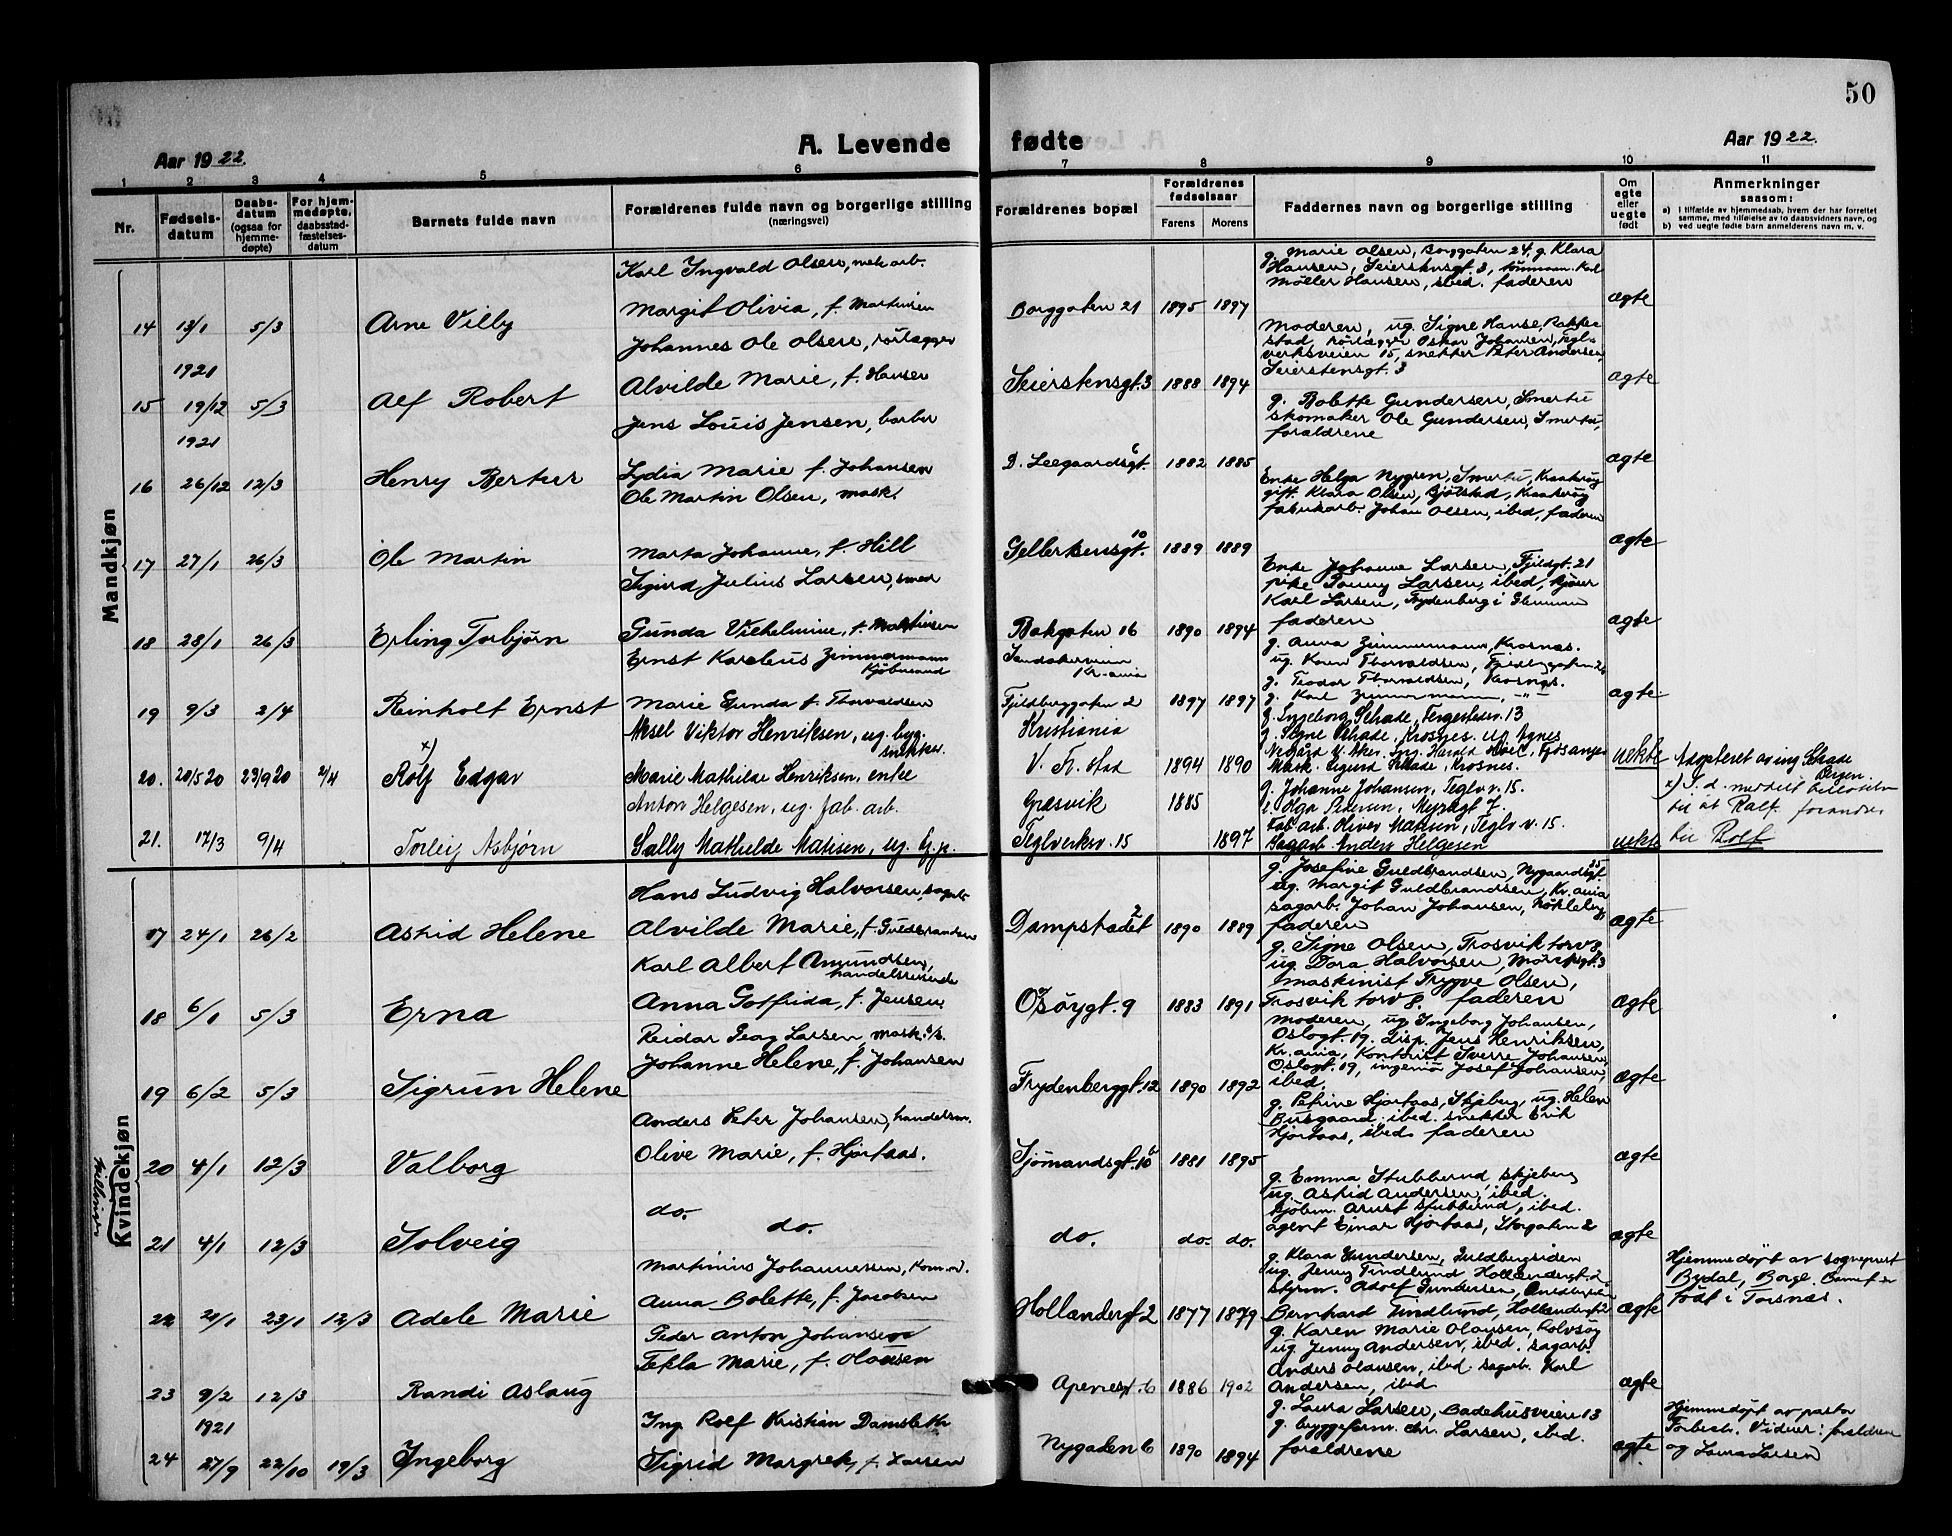 50
A. Levende fødte
Aar 1922.
Aar 1922.
1 2 3 4 5 6 7 8 9 10 11
Nr.
Fødsels-
datum
Daabs-
datum
(ogsaa for
hjemme-
døpte)
For hjem-
medøpte,
daabsstad-
fæstelses-
datum
Barnets fulde navn
Forældrenes fulde navn og borgerlige stilling
(næringsvei)
Forældrenes bopæl
Forældrenes
fødselsaar
Farens Morens
Faddernes navn og borgerlige stilling
Om
egte
eller
uegte
født
Anmerkninger
saasom:
a) I tilfælde av hjemmedaab, hvem der har forrettet
samme, med tilføielse av to daabsvidners navn, og
b) ved uegte fødte barn anmelderens navn m. v.
Mandkjøn
Karl Ingvald Olsen, mek. arb.
g. Marie Olsen, Borggaten 24, g. Klara
Hansen, Seierstensgt. 3, Karl
Møller Hansen, ibid. faderen
14 13/1 5/3 Arne Villy Margit Olivia, f. Martinsen Borggaten 21 1895 1897 ægte
Johannes Ole Olsen, rørlægger
Moderen, ug. Signe Hanse, Rakke-
stad, rørlægger Oskar Johansen, Tegl-
verksveien 15, snekker Peter Andersen,
Seierstensgt. 3
1921
15 19/12 5/3 Alf Robert Alvilde Marie, f. Hansen Seierstensgt. 3 1888 1894 ægte
Jens Louis Jensen, barber
g. Bolette Gundersen, Smertu
skomaker Ole Gundersen, Smertu,
forældrene
1921
16 26/12 12/3 Henry Bertur Lydia Marie f. Johansen D. Leegaardsgt. 6 1882 1885 ægte
Ole Martin Olsen, mask.
Enke Helga Nygren, Smertu, Kraakerøy
gift Klara Olsen, Bjølstad, Kraakerøy
fabrikarb. Johan Olsen, ibid, faderen
17 27/1 26/3 Ole Martin Marta Johanne, f. Hill Gellertsensgt. 10 1889 1889 ægte
Sigurd Julius Larsen, smed
Enke Johanne Larsen, Fjeldgt. 21
pike Ranny Larsen, ibid, kjører
Karl Larsen, Frydenberg i Glemmen
faderen
18 28/1 26/3 Erling Torbjørn Gunda Vilhelmine, f. Mathiesen Bakgaten 16 1890 1894 ægte
Ernst Karelius Zimmermann
Kjøbmand
Kr.ania
g. Anna Zimmermann, Krosnes.
ug. Karen Thorvaldsen, Fjeldberggaten 2
g. Teodor Thorvaldsen, Krosnes.
g. Karl Zimmermann, -"-
19 9/3 2/4 Reinholt Ernst Marie Gunda f. Thorvaldsen Fjeldberggaten 2 1897 1897 ægte
Aksel Viktor Henriksen, ug. byg.
snekker
Kristiania
g. Ingeborg Schade, Fergestedsv. 13
g. Signe Schade, Krosnes. ug. Agnes
Mask. Sigurd Schade, Krosnes.
20. 20/5 20 23/9 20 2/4 x) Rolf Edgar Marie Mathilde Henriksen, enke V. Fr. stad 1894 1890 uekte
Adopteret av ing. Schade
Bergen.
x)
til at Ralf forandres
til Rolf
Anton Helgesen, ug. fab. arb. Græsvik 1885
g. Johanne Johansen, Teglv. v. 15.
g. Olga Pedersen, Myragt 7.
Fab. arb. Oliver Matisen, Teglv. v. 15.
21. 17/3 9/4 Torleif Asbjørn Sally Mathilde Matisen, ug. Teglverksv. 15 1897 Sagarb. Anders Helgesen uekte
Kvindekjøn
Hans Ludvig Halvorsen, sagarb.
g. Josefine Guldbrandsen, Nygaardsgt. 35
ug. Margit Guldbrandsen, Kr.ania
sagarb. Johan Johansen, Rökleberg,
faderen
17 24/1 26/2 Astrid Helene Alvilde Marie, f. Guldbrandsen Dampstadet 2 1890 1889 ægte
Karl Albert Amundsen,
handelsreisende
g. Signe Olsen, Trosvik torv 8
ug. Dora Halvorsen, 3
maskinist Trygve Olsen,
Trosvik torv 8. faderen
18 6/1 5/3 Erna Anna Gotfrida, f. Jensen Oløygt. 9 1883 1891 ægte
Reidar Georg Larsen, mask.
moderen, ug Ingeborg Johansen,
Oslogt. 19. Disp. Jens Henriksen,
Kr.ania, Kontorist Sverre Johansen,
Oslogt. 19, ingeniør Josef Johansen,
ibid.
19 6/2 5/3 Sigrun Helene Johanne Helene, f. Johansen Frydenberggt. 12 1890 1892 ægte
Anders Peter Johansen, handelsm.
g. Petrine Hjortaas, Skjeberg, ug. Helen
Busgaard, ibid. snekker Erik
Hjortaas, ibid. faderen
tvillinger
20 4/1 12/3 Valborg Olive Marie, f. Hjortaas. Sjømandsgt. 10 1881 1895 ægte
g. Emma Stubberud Skjeberg
ug. Astrid Andersen, ibid.
kjøbm. Arnst Stubberud, ibid.
agent Einar Hjortaas, Storgaten 2
21 4/1 12/3 Solveig do. do. do. do. do. ægte
Martinius Johannessen,
g. Klara Gundersen, Guldbergsiden
ug. Jenny Tindlund, Hollendergt. 2
styrm. Adolf Gundersen, Guldbergsiden
Bernhard Tindlund, Hollendergt. 2
22 21/1 23/1 12/3 Adele Marie Anna Bolette, f. Jacobsen Hollandergt 2 1877 1879 ægte
Hjemmedøpt av sogneprest
Bydal, Borge. Barnet er
født i Torsnæs.
Peder Anton Johansen
g. Karen Marie Olausen, Rolvsøy
ug. Jenny Andersen, ibid. sagarb.
Anders Olausen, ibid. sagarb. Karl
Andersen, ibid
23 9/2 12/3 Randi Aslaug Tekla Marie, f. Olausen Apenesgt. 6 1886 1902 ægte
1921
Ing. Rolf Kristian Damsleth
g. Laura Larsen, Badehusveien 13
g. byggeform. Chr. Larsen, ibid.
forældrene
24 27/9 22/10 19/3 Ingeborg Sigrid Margrete, f. Larsen Nygaten 6 1890 1894 ægte.
Hjemmedøpt av pastor
Torbest. Vidner: forældrene
og Laura Larsen